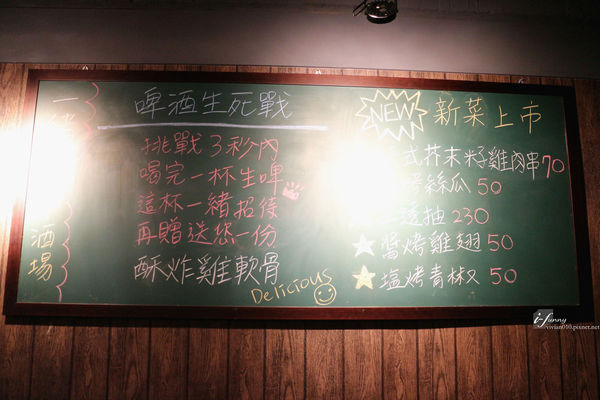 一緒
酒場
啤酒生死戰
挑戰3秒內
喝完一杯生啤
這杯一緒招待
再贈送您一份
酥炸雞軟骨
Delicious
NEW 新菜上市
式芥末籽雞肉串70
絲瓜50
透抽230
醬烤雞翅50
塩烤青林又50
i-funny
vivian010.pixnet.net